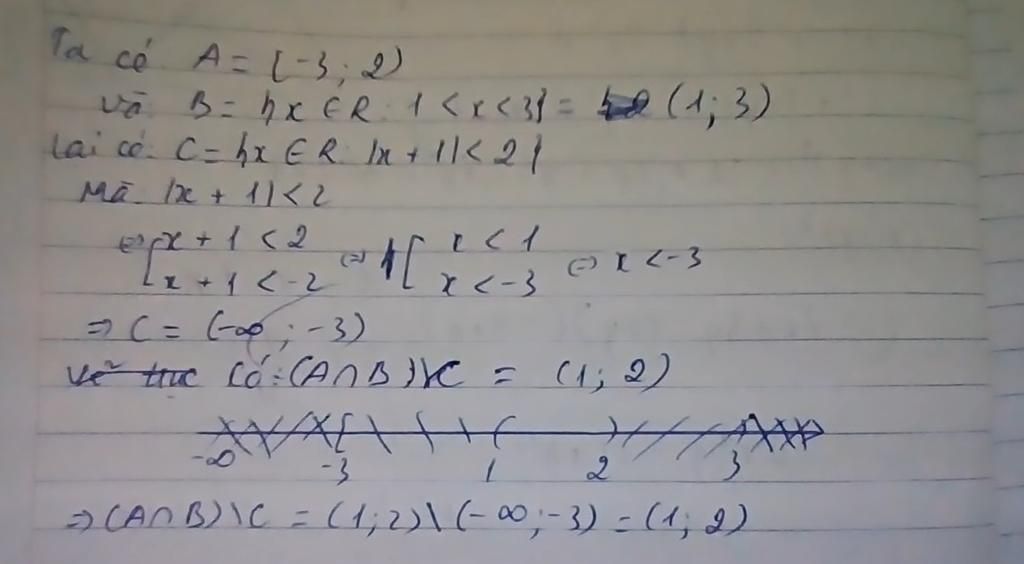 Ta có A = [-3; 2)
và B = {x ∈ R: 1 < x < 3} = (1; 3)
Lại có: C = {x ∈ R: |x + 1| < 2}
Mà |x + 1| < 2
⇔ [x + 1 < 2 ⇔ [x < 1
[x + 1 < -2 [x < -3 ⇔ x < -3
⇒ C = (-∞; -3)
Vẽ trục Có: (A∩B)\C = (1; 2)
-∞ -3 1 2 3
⇒ (A∩B)\C = (1; 2)\(-∞; -3) = (1; 2)